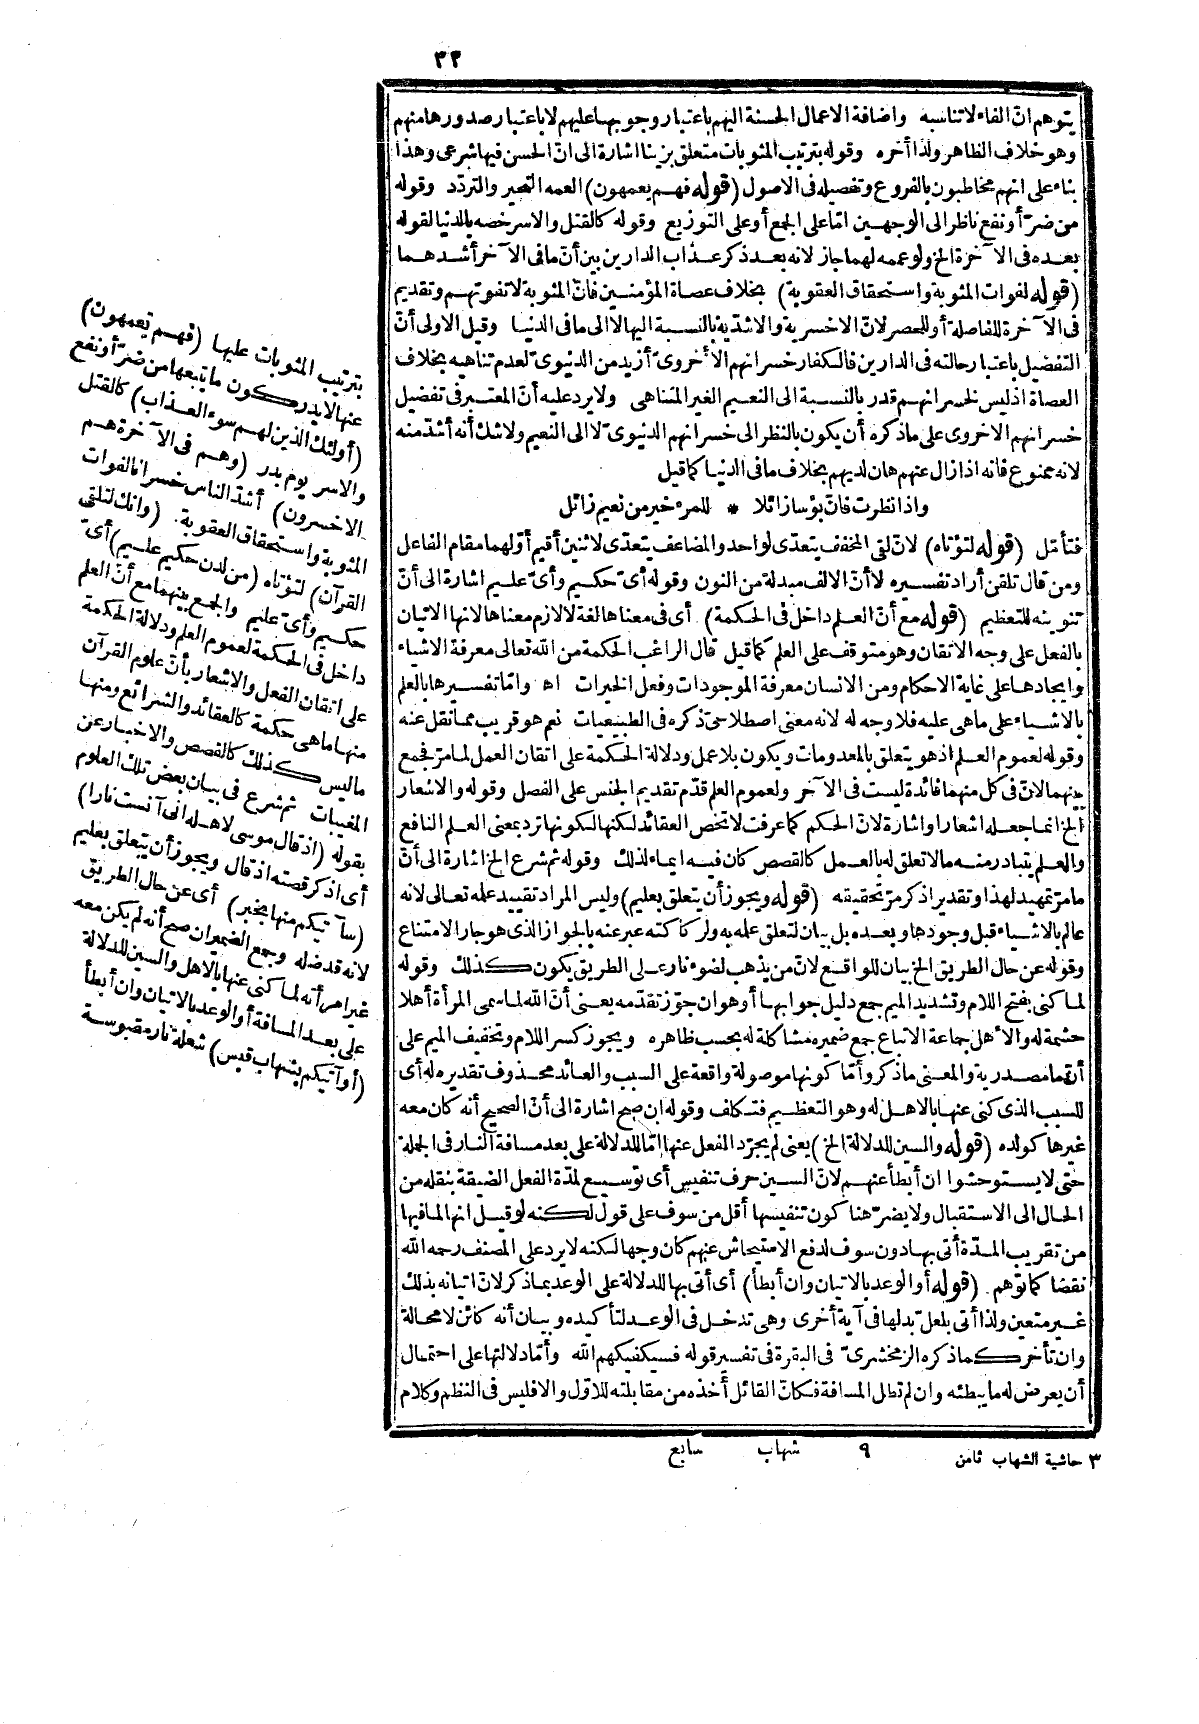 ٣٣
يتوهم انّ الفاء لا تناسبه واضافة الاعمال الحسنة اليهم باعتبار وجوبها عليهم لا باعتبار صدورها منهم
وهو خلاف الظاهر ولذا أخره وقوله بترتيب المثوبات متعلق بزينا اشارة الى انّ الحسن فيها شرعى وهذا
بناء على انهم مخاطبون بالفروع وتفصيله فى الاصول (قوله فهم يعمهون) العمه التحير والتردّد وقوله
من ضرّ أو نفع ناظر الى الوجهين امّا على الجمع أو على التوزيع وقوله كالقتل والاسر خصه بالدنيا لقوله
بعده فى الآخرة الخ ولو عمه لهما جاز لانه بعد ذكر عذاب الدارين بين أن ما فى الآخر أشدهما
(قوله لفوات المثوبة واستحقاق العقوبة) بخلاف عصاة المؤمنين فانّ المثوبة لا تفوتهم وتقديم
فى الآخرة للفاصلة أو للحصر لانّ الاخسرية والاشدّية بالنسبة اليها لا الى ما فى الدنيا وقيل الاولى أنّ
التفضيل باعتبار حالته فى الدارين فالكفار خسرانهم الأخروىّ أزيد من الدنيوىّ لعدم تناهيه بخلاف
العصاة اذ ليس لخسرانهم قدر بالنسبة الى النعيم الغير المتناهى ولا يرد عليه أنّ المعتبر فى تفضيل
خسرانهم الاخروى على ما ذكره أن يكون بالنظر الى خسرانهم الدنيوىّ لا الى النعيم ولا شك أنه أشدّ منه
لانه ممنوع فانه اذا زال عنهم هان لديهم بخلاف ما فى الدنيا كما قيل
واذا نظرت فانّ بؤسا زائلا * للمرء خير من نعيم زائل
فتأمّل (قوله لتؤتاه) لانّ لقى المخفف يتعدّى لواحد والمضاعف يتعدّى لاثنين أقيم أوّلهما مقام الفاعل
ومن قال تلقن أراد تفسيره لا أنّ الالف مبدلة من النون وقوله أىّ حكيم وأىّ عليم اشارة الى أنّ
تنوينه للتعظيم (قوله مع أنّ العلم داخل فى الحكمة) أى فى معناها لغة لا لازم معناها لانها الاتيان
بالفعل على وجه الاتقان وهو متوقف على العلم كما قيل قال الراغب الحكمة من الله تعالى معرفة الاشياء
وايجادها على غاية الاحكام ومن الانسان معرفة الموجودات وفعل الخيرات اه وامّا تفسيرها بالعلم
بالاشياء على ماهى عليه فلا وجه له لانه معنى اصطلاحىّ ذكره فى الطبيعيات نعم هو قريب مما نقل عنه
وقوله لعموم العلم اذ هو يتعلق بالمعدومات ويكون بلا عمل ودلالة الحكمة على اتقان العمل لما مرّ فجمع
بينهما لانّ فى كل منهما فائدة ليست فى الآخر ولعموم العلم قدّم تقديم الجنس على الفصل وقوله والاشعار
الخ انما جعله اشعارا واشارة لانّ الحكم كما عرفت لا تخص العقائد لكنها لكونها ترد بمعنى العلم النافع
والعلم يتبادر منه ما لا تعلق له بالعمل كالقصص كان فيه ايماء لذلك وقوله ثم شرع الخ اشارة الى أنّ
ما مرّ تمهيد لهذا وتقدير اذكر مرّ تحقيقه (قوله ويجوز أن يتعلق بعليم) وليس المراد تقييد علمه تعالى لانه
عالم بالاشياء قبل وجودها وبعده بل بيان لتعلق علمه به ولركاكته عبر عنه بالجواز الذى هو جار الامتناع
وقوله عن حال الطريق الخ بيان للواقع لانّ من يذهب لضوء نار على الطريق يكون كذلك وقوله
لما كنى بفتح اللام وتشديد الميم جمع دليل جوابها أو هو ان جوّز تقدّمه يعنى أنّ الله لما سمى المرأة أهلا
حشمة له والأهل جماعة الاتباع جمع ضميره مشاكلة له بحسب ظاهره ويجوز كسر اللام وتخفيف الميم على
أنّ ما مصدرية والمعنى ما ذكر وأمّا كونها موصولة واقعة على السبب والعائد محذوف تقديره له أى
للسبب الذى كنى عنها بالاهل له وهو التعظيم فتكلف وقوله ان صح اشارة الى أنّ الصحيح أنه كان معه
غيرها كولده (قوله والسين للدلالة الخ) يعنى لم يجرّد الفعل عنها امّا للدلالة على بعد مسافة النار فى الجملة
حتى لا يستوحشوا ان أبطأ عنهم لانّ السين حرف تنفيس أى توسيع لمدّة الفعل الضيقة بنقله من
الحال الى الاستقبال ولا يضرّ هنا كون تنفيسها أقل من سوف على قول لكنه لو قيل انها لما فيها
من تقريب المدّة أتى بها دون سوف لدفع الاستيحاش عنهم كان وجها لكنه لا يرد على المصنف رحمه الله
نقضا كما توهم (قوله أو الوعد بالاتيان وان أبطأ) أى أتى بها للدلالة على الوعد بما ذكر لانّ اتيانه بذلك
غير متعين ولذا أتى بلعلّ بدلها فى آية أخرى وهى تدخل فى الوعد لتأكيده وبيان أنه كائن لا محالة
وان تأخر كما ذكره الزمخشرىّ فى البقرة فى تفسير قوله فسيكفيكهم الله وأمّا دلالتها على احتمال
أن يعرض له ما يبطئه وان لم تطل المسافة فكانّ القائل أخذه من مقابلته للاوّل والا فليس فى النظم وكلام
بترتيب المثوبات عليها (فهم يعمهون)
عنها لا يدركون ما يتبعها من ضرّ أو نفع
(أولئك الذين لهم سوء العذاب) كالقتل
والاسر يوم بدر (وهم فى الآخرة هم
الاخسرون) أشدّ الناس خسرانا لفوات
المثوبة واستحقاق العقوبة. (وانك لتلقى
القرآن) لتؤتاه (من لدن حكيم عليم) أىّ
حكيم وأىّ عليم والجمع بينهما مع أنّ العلم
داخل فى الحكمة لعموم العلم ودلالة الحكمة
على اتقان الفعل والاشعار بأنّ علوم القرآن
منها ما هى حكمة كالعقائد والشرائع ومنها
ما ليس كذلك كالقصص والاخبار عن
المغيبات ثم شرع فى بيان بعض تلك العلوم
بقوله (اذ قال موسى لاهله انى آنست نارا)
أى اذكر قصته اذ قال ويجوز أن يتعلق بعليم
(سآتيكم منها بخبر) أى عن حال الطريق
لانه قد ضله وجمع الضمير ان صح أنه لم يكن معه
غير امرأته لما كنى عنها بالاهل والسين للدلالة
على بعد المسافة أو الوعد بالاتيان وان أبطأ
(أو آتيكم بشهاب قبس) شعلة نار مقبوسة
٩ شهاب سابع
٣ حاشية الشهاب ثامن